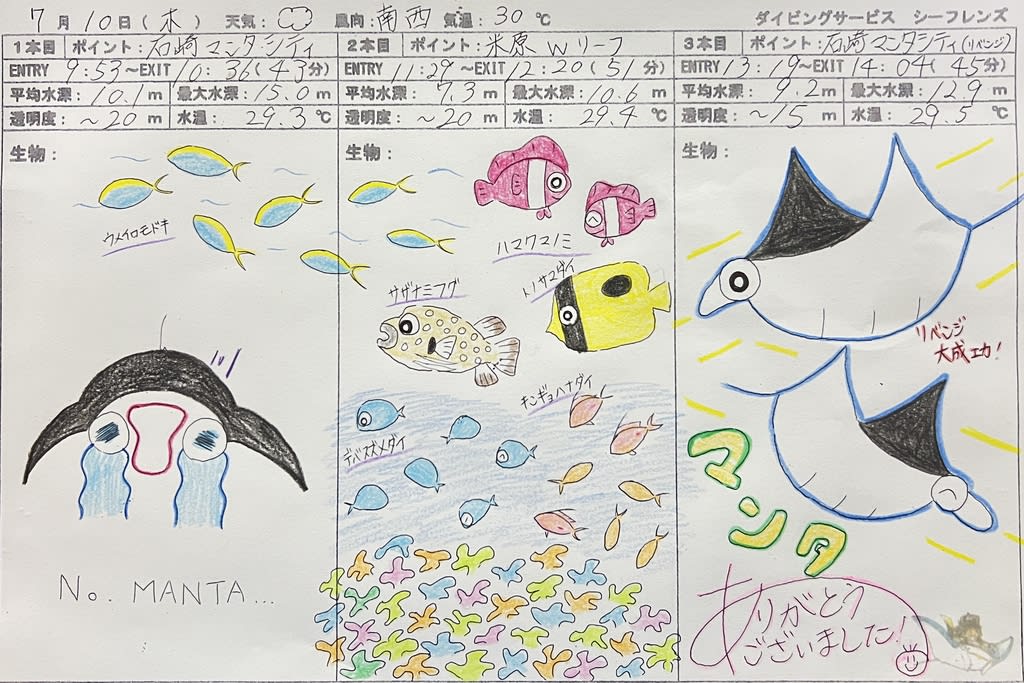 7月10日(木) 天気: 風向:南西 気温:30℃ ダイビングサービス シーフレンズ
1本目 ポイント:石崎マンタシティ
ENTRY 9:53~EXIT 10:36(43分)
平均水深:10.1m 最大水深:15.0m
透明度:~20m 水温:29.3℃
生物:
ウメイロモドキ
No. MANTA...
2本目 ポイント:米原Wリーフ
ENTRY 11:29~EXIT 12:20(51分)
平均水深:7.3m 最大水深:10.6m
透明度:~20m 水温:29.4℃
生物:
ハマクマノミ
トノサマダイ
サザナミフグ
キンギョハナダイ
デバスズメダイ
3本目 ポイント:石崎マンタシティ(リベンジ)
ENTRY 13:19~EXIT 14:04(45分)
平均水深:9.2m 最大水深:12.9m
透明度:~15m 水温:29.5℃
生物:
リベンジ
大成功!
マンタ
ありがとう
ございました!